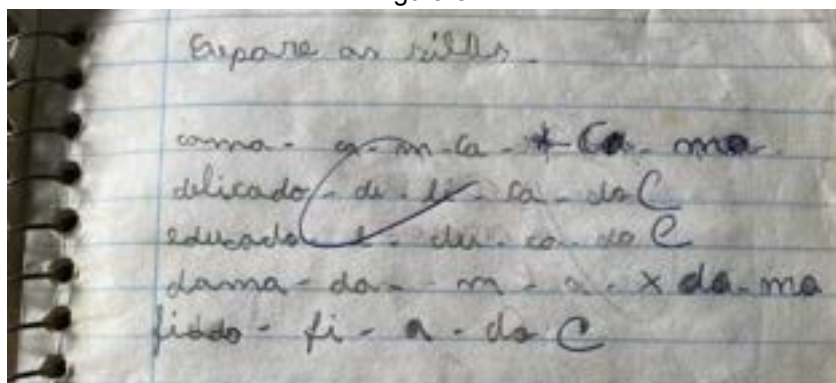 Separe as sillbs.
cama - ca - m - ca - * Ca - ma
delicado - de - li - ca - do C
educado - e - du - ca - do C
dama - da - m - a - x da - ma
fiado - fi - a - do C